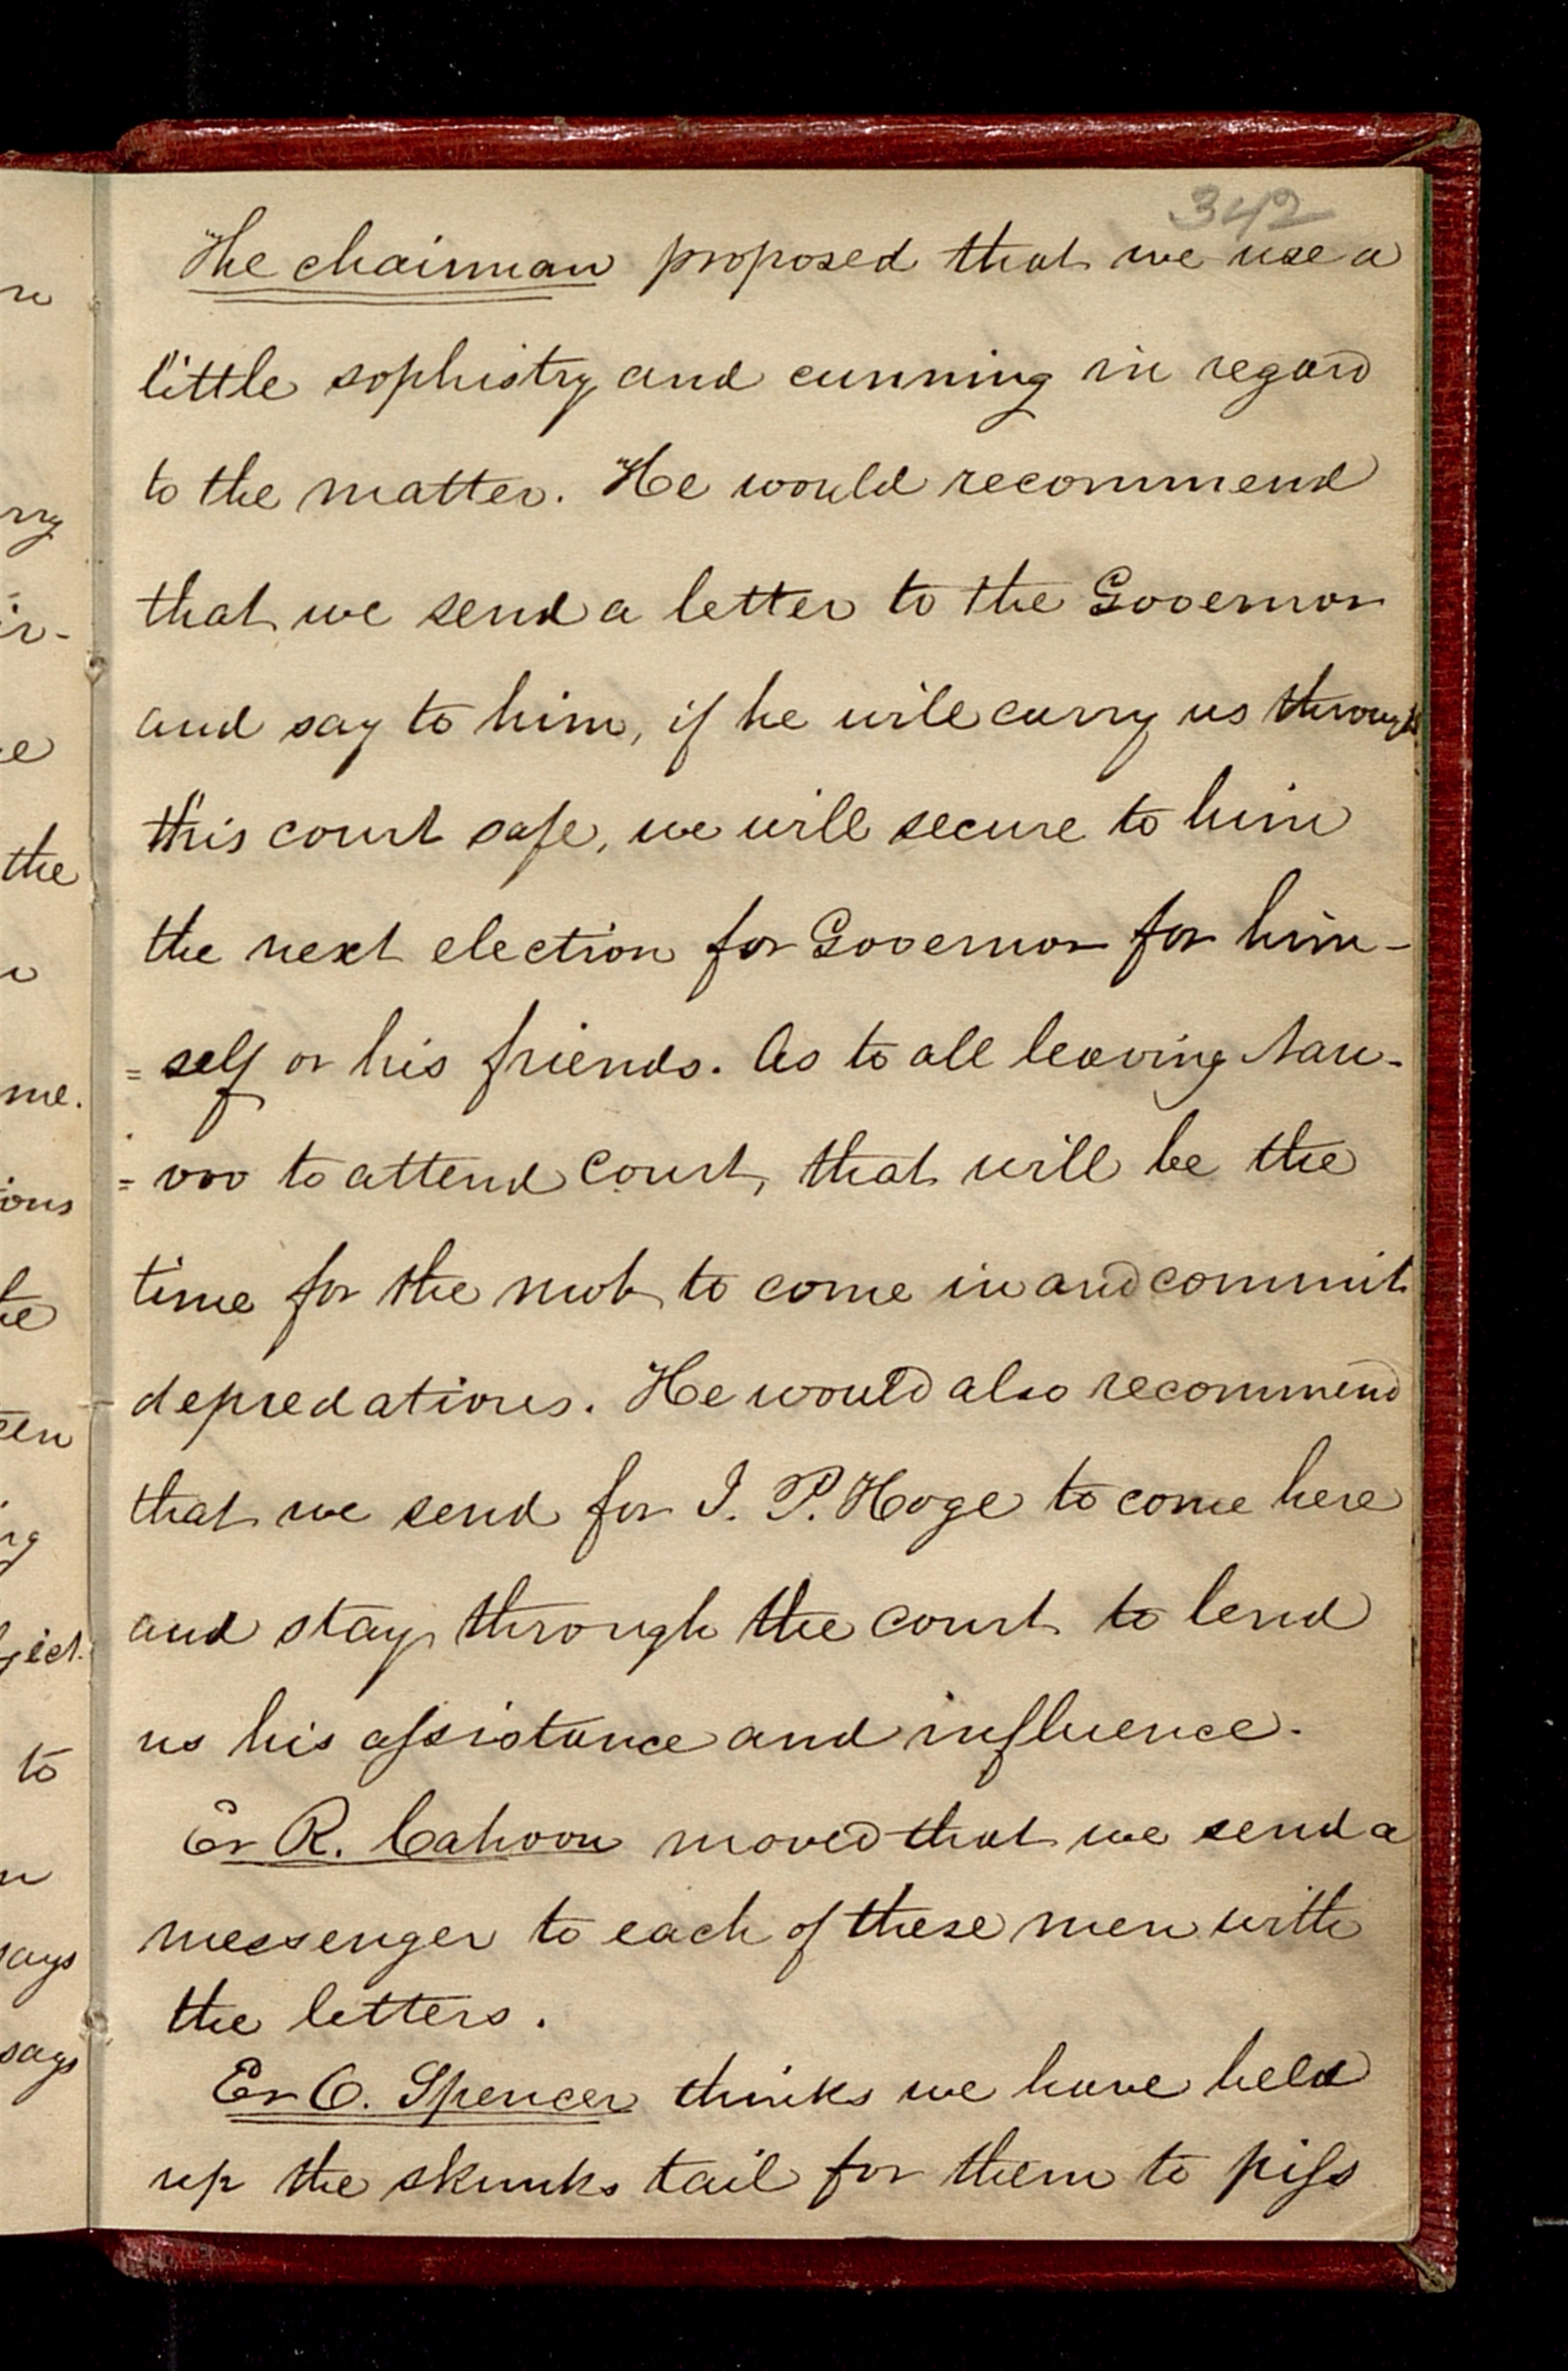 342
The chairman proposed that we use a
little sophistry and cunning in regard
to the matter. He would recommend
that we send a letter to the Governor
and say to him, if he will carry us through
this court safe, we will secure to him
the next election for Governor for him-
=self or his friends. As to all leaving Nau-
=voo to attend court, that will be the
time for the mob to come in and commit
depredations. He would also recommend
that we send for J. P. Hoge to come here
and stay through the court to lend
us his assistance and influence.
Er R. Cahoon moved that we send a
messenger to each of these men with
the letters.
Er O. Spencer thinks we have held
up the skunks tail for them to piss